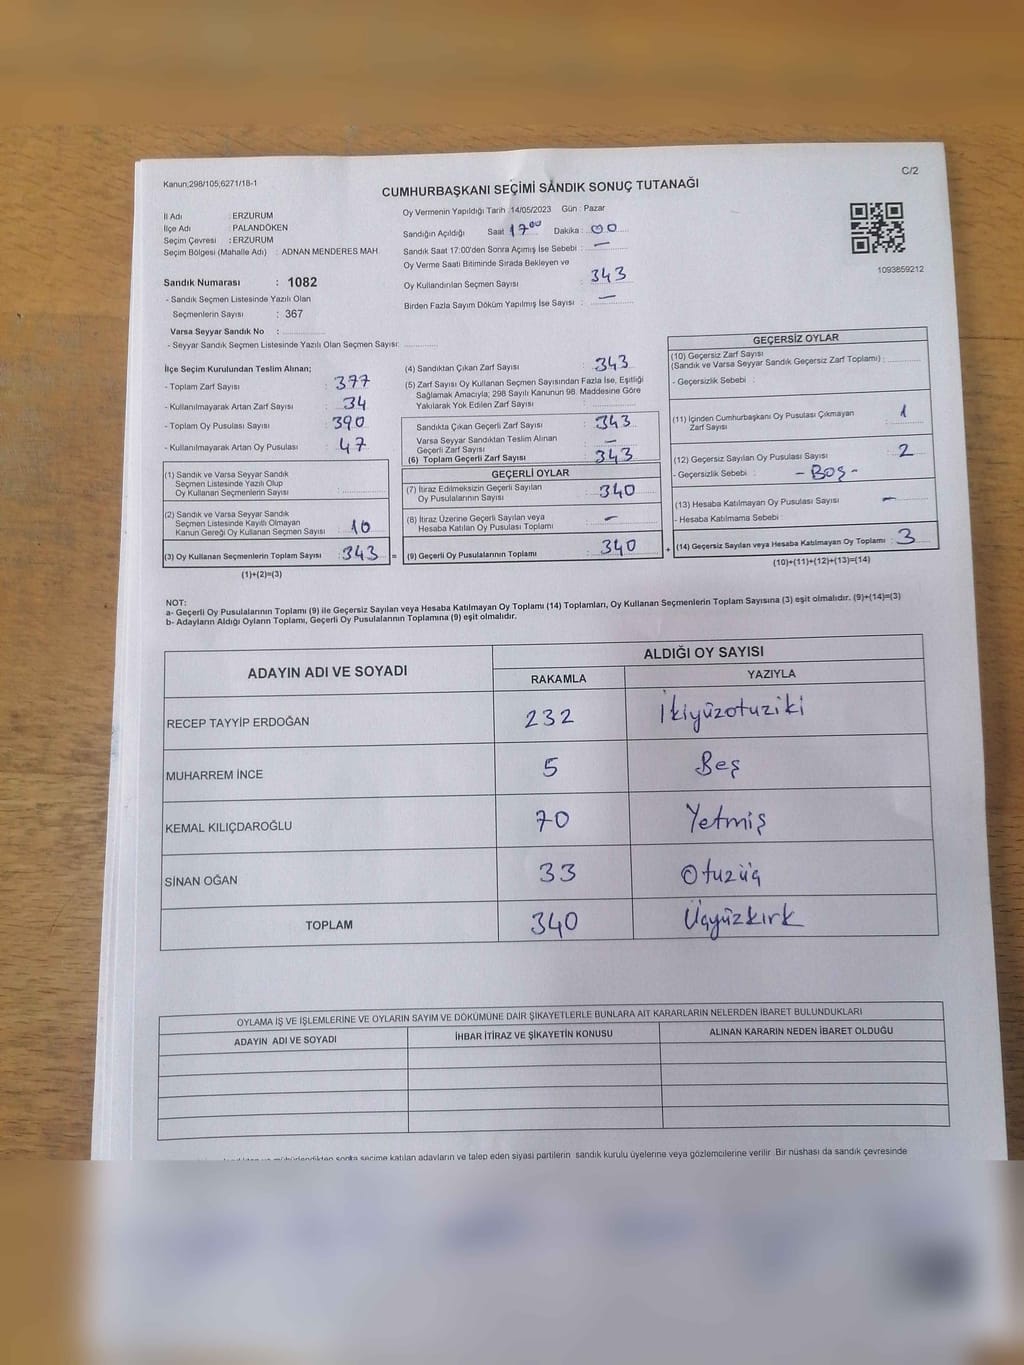 Kanun;298/105;6271/18-1
C/2
CUMHURBAŞKANI SEÇİMİ SANDIK SONUÇ TUTANAĞI
İl Adı : ERZURUM
İlçe Adı : PALANDÖKEN
Seçim Çevresi : ERZURUM
Seçim Bölgesi (Mahalle Adı) : ADNAN MENDERES MAH.
Sandık Numarası : 1082
- Sandık Seçmen Listesinde Yazılı Olan
Seçmenlerin Sayısı : 367
Varsa Seyyar Sandık No :
- Seyyar Sandık Seçmen Listesinde Yazılı Olan Seçmen Sayısı:
Oy Vermenin Yapıldığı Tarih :14/05/2023 Gün : Pazar
Sandığın Açıldığı Saat : 17⁰⁰ Dakika : 00
Sandık Saat 17:00'den Sonra Açımış İse Sebebi : —
Oy Verme Saati Bitiminde Sırada Bekleyen ve
Oy Kullandırılan Seçmen Sayısı : 343
Birden Fazla Sayım Döküm Yapılmış İse Sayısı : —
1093859212
İlçe Seçim Kurulundan Teslim Alınan;
- Toplam Zarf Sayısı : 377
- Kullanılmayarak Artan Zarf Sayısı : 34
- Toplam Oy Pusulası Sayısı : 390
- Kullanılmayarak Artan Oy Pusulası : 47
(1) Sandık ve Varsa Seyyar Sandık
Seçmen Listesinde Yazılı Olup
Oy Kullanan Seçmenlerin Sayısı :
(2) Sandık ve Varsa Seyyar Sandık
Seçmen Listesinde Kayıtlı Olmayan
Kanun Gereği Oy Kullanan Seçmen Sayısı : 10
(3) Oy Kullanan Seçmenlerin Toplam Sayısı : 343 =
(1)+(2)=(3)
(4) Sandıktan Çıkan Zarf Sayısı : 343
(5) Zarf Sayısı Oy Kullanan Seçmen Sayısından Fazla İse, Eşitliği
Sağlamak Amacıyla; 298 Sayılı Kanunun 98. Maddesine Göre
Yakılarak Yok Edilen Zarf Sayısı :
Sandıkta Çıkan Geçerli Zarf Sayısı : 343
Varsa Seyyar Sandıktan Teslim Alınan
Geçerli Zarf Sayısı : —
(6) Toplam Geçerli Zarf Sayısı : 343
GEÇERLİ OYLAR
(7) İtiraz Edilmeksizin Geçerli Sayılan
Oy Pusulalarının Sayısı : 340
(8) İtiraz Üzerine Geçerli Sayılan veya
Hesaba Katılan Oy Pusulası Toplamı : —
(9) Geçerli Oy Pusulalarının Toplamı : 340 +
GEÇERSİZ OYLAR
(10) Geçersiz Zarf Sayısı
(Sandık ve Varsa Seyyar Sandık Geçersiz Zarf Toplamı) :
- Geçersizlik Sebebi :
(11) İçinden Cumhurbaşkanı Oy Pusulası Çıkmayan
Zarf Sayısı : 1
(12) Geçersiz Sayılan Oy Pusulası Sayısı : 2
- Geçersizlik Sebebi : - BOŞ -
(13) Hesaba Katılmayan Oy Pusulası Sayısı : —
- Hesaba Katılmama Sebebi :
(14) Geçersiz Sayılan veya Hesaba Katılmayan Oy Toplamı : 3
(10)+(11)+(12)+(13)=(14)
NOT:
a- Geçerli Oy Pusulalarının Toplamı (9) ile Geçersiz Sayılan veya Hesaba Katılmayan Oy Toplamı (14) Toplamları, Oy Kullanan Seçmenlerin Toplam Sayısına (3) eşit olmalıdır. (9)+(14)=(3)
b- Adayların Aldığı Oyların Toplamı, Geçerli Oy Pusulalarının Toplamına (9) eşit olmalıdır.
ADAYIN ADI VE SOYADI ALDIĞI OY SAYISI
RAKAMLA YAZIYLA
RECEP TAYYİP ERDOĞAN 232 İkiyüzotuziki
MUHARREM İNCE 5 Beş
KEMAL KILIÇDAROĞLU 70 Yetmiş
SİNAN OĞAN 33 Otuzüç
TOPLAM 340 Üçyüzkırk
OYLAMA İŞ VE İŞLEMLERİNE VE OYLARIN SAYIM VE DÖKÜMÜNE DAİR ŞİKAYETLERLE BUNLARA AİT KARARLARIN NELERDEN İBARET BULUNDUKLARI
ADAYIN ADI VE SOYADI İHBAR İTİRAZ VE ŞİKAYETİN KONUSU ALINAN KARARIN NEDEN İBARET OLDUĞU
mühürlendikten sonra seçime katılan adayların ve talep eden siyasi partilerin sandık kurulu üyelerine veya gözlemcilerine verilir. Bir nüshası da sandık çevresinde